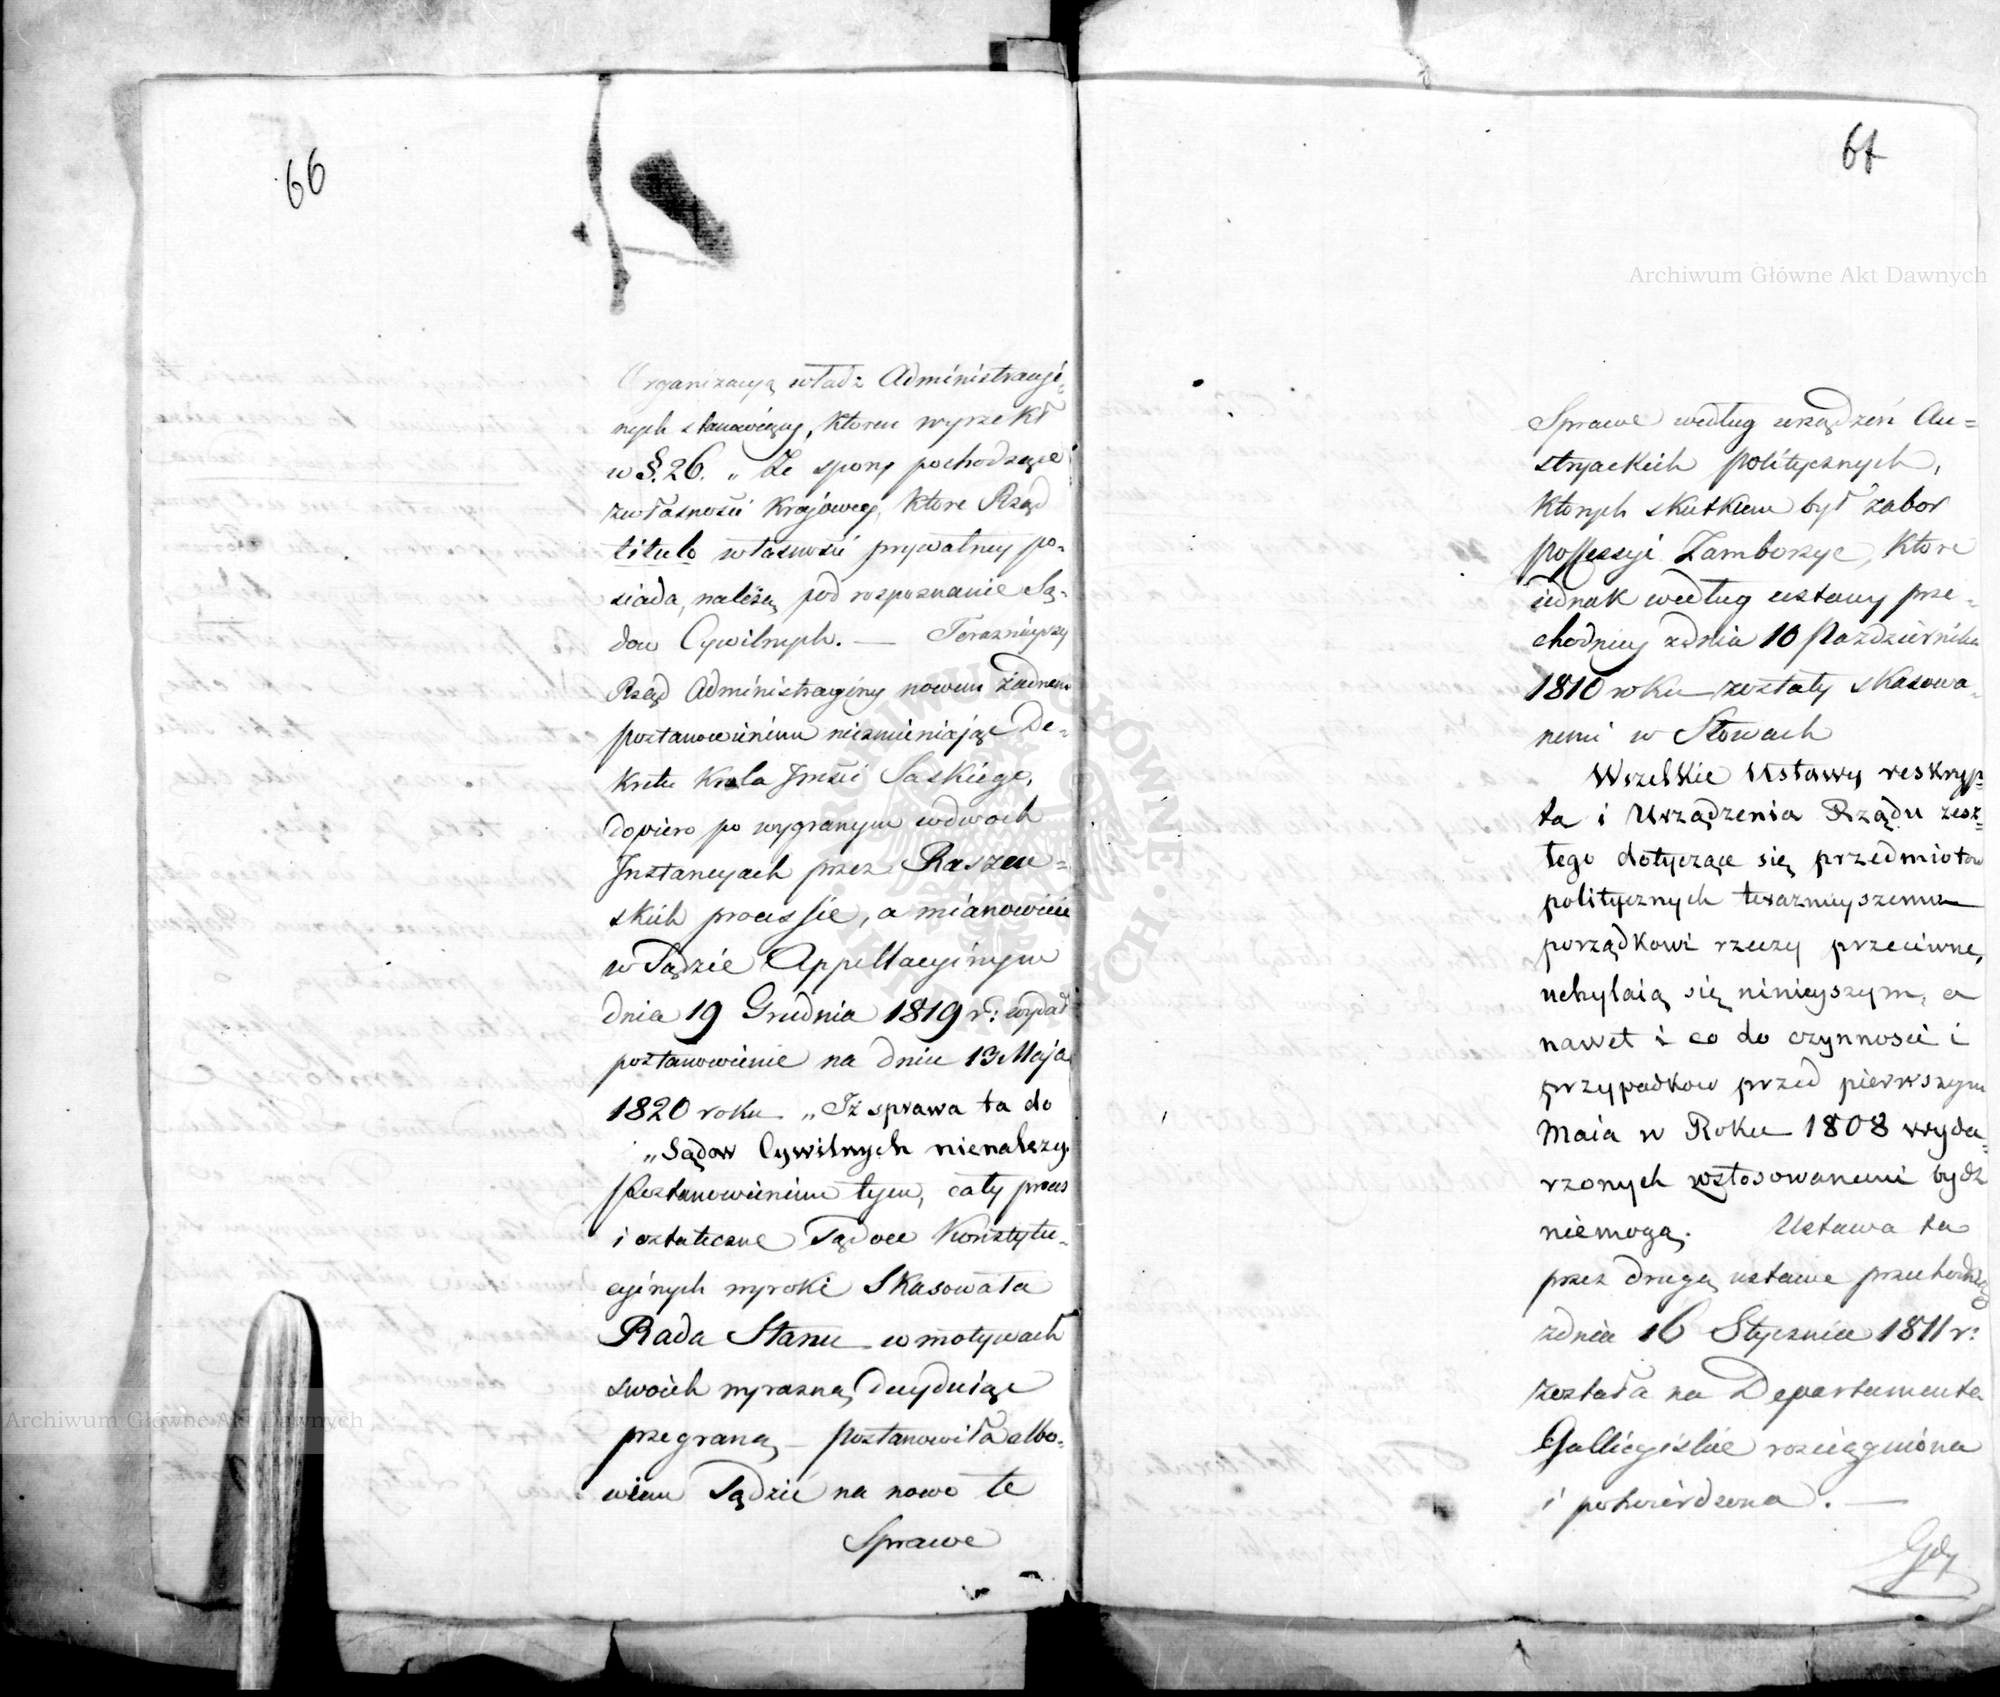 66
Organizacyą władz Administracyi-
nych stanowiący, ktoren wyrzekł
w §. 26. „ Że spory pochodzące
zwłasności Krajowey, ktore Rząd
titulo własności prywatney po-
siada, należą pod rozpoznanie Są-
dow Cywilnych. — Teraznieyszy
Rząd Administracyiny nowem żadnem
postanowieniem niezmieniając De-
kretu Krola Jmści Saskiego,
dopiero po wygranym wdwoch
Instancyach przez Raszew-
skich processie, a mianowicie
w Sądzie Appellacyinym
dnia 19 Grudnia 1819 r: wydał
postanowienie na dniu 13 Maja
1820 roku „Iż sprawa ta do
„Sądow Cywilnych nienależy.
Postanowieniem tym, cały proces
i ostateczne Sądow Konstytu-
cyinych wyroki Skasowała
Rada Stanu w motywach
swoich wyrazną decyduiąc
przegraną — postanowiła albo-
wiem Sądzić na nowo te
Sprawe
67
Sprawe według urządzeń Au-
stryackich politycznych,
ktorych skutkiem był zabor
Possessyi Zamborzyc, ktore
iednak według ustawy prze-
chodniey zdnia 10 Pazdziernika
1810 roku zostały skasowa-
nemi w Słowach
Wszelkie Ustawy, reskryp-
ta i Urządzenia Rządu zesz-
tego dotyczące się przedmiotow
politycznych teraznieyszemu
porządkowi rzeczy przeciwne,
uchylaią się ninieyszym, a
nawet i co do czynnosci i
przypadkow przed pierwszym
Maia w Roku 1808 wyda-
rzonych wzstosowanemi bydź
niemogą. Ustawa ta
przez drugą ustawe przechodnią
zdnia 16 Stycznia 1811 r:
została na Departamenta
Gallicyiskie rozciągniona
i potwierdzona. —
Gdy
Archiwum Główne Akt Dawnych
Archiwum Główne Akt Dawnych
ARCHIWUM GŁÓWNE AKT DAWNYCH